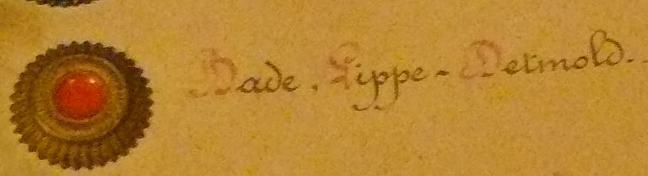 Bade. Lippe-Detmold.